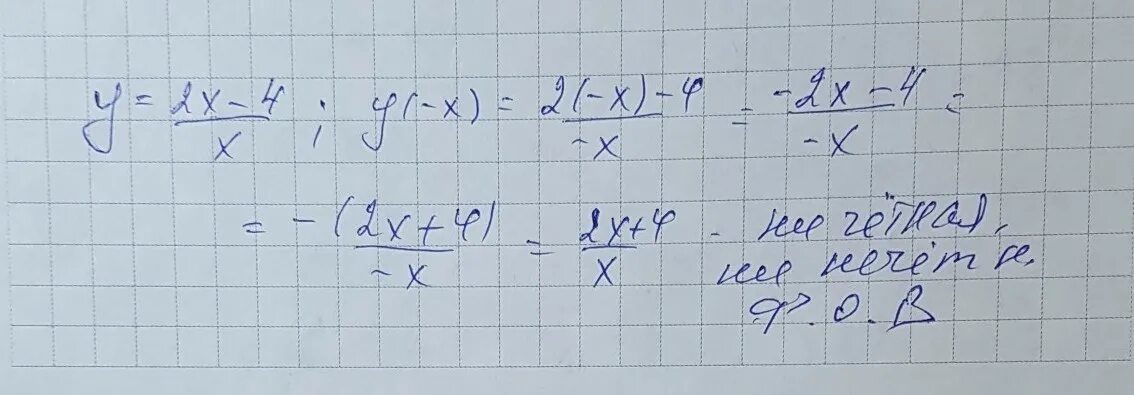 y = (2x - 4)/x ; y(-x) = (2(-x) - 4)/(-x) = (-2x - 4)/(-x) =
= -(2x + 4)/(-x) = (2x+4)/x - ни чётная,
ни нечётн.
ф. О. В